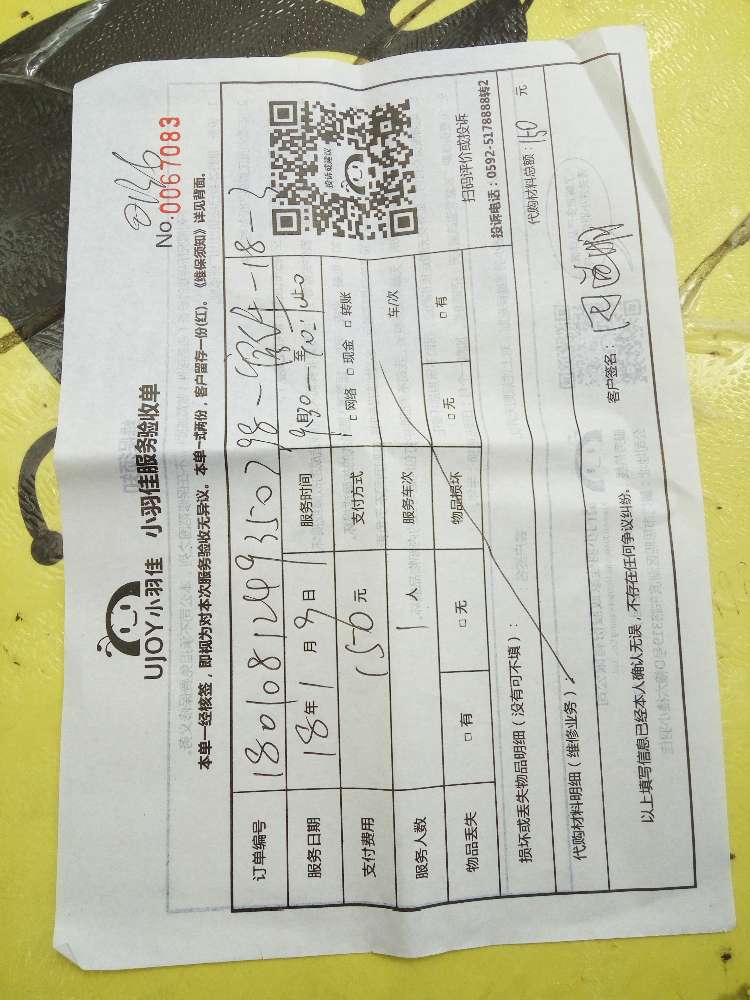 UJOY小羽佳 小羽佳服务验收单
No:0067083
本单一经核签，即视为对本次服务验收无异议。本单一式两份，客户留存一份(红)。《维保须知》详见背面。
订单编号 180108124935079
服务日期 18年1月9日 服务时间 至
支付费用 150元 支付方式 □网络 □现金 □转账
服务人数 1人 服务车次 车/次
物品丢失 □有 □无 物品损坏 □无 □有
投诉或建议
扫码评价或投诉
投诉电话：0592-5178888转2
损坏或丢失物品明细（没有可不填）：
代购材料明细（维修业务）： 代购材料总额：150元
以上填写信息已经本人确认无误，不存在任何争议纠纷。 客户签名：